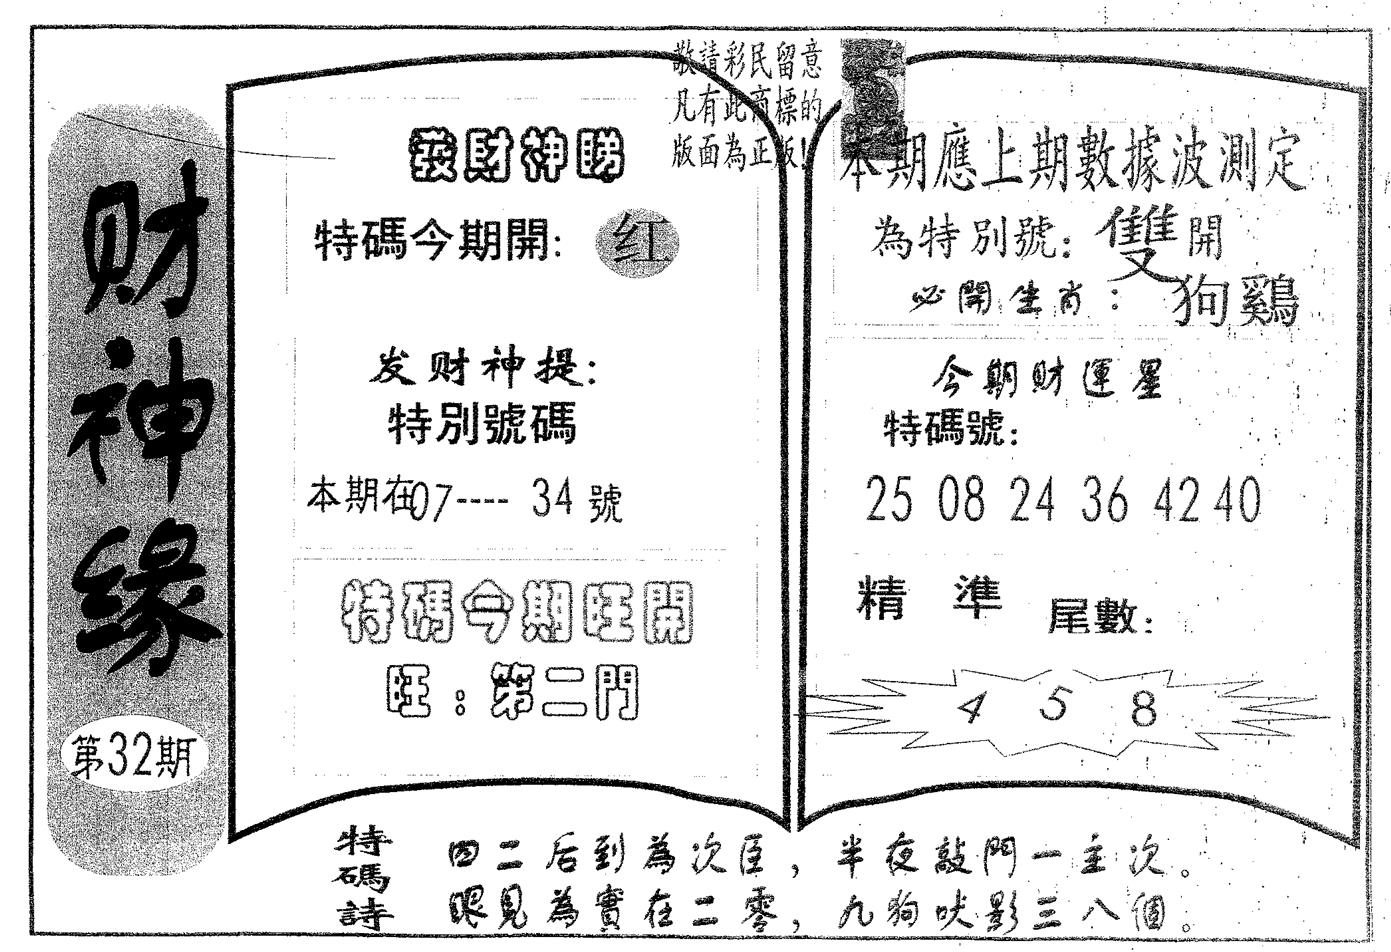 财神缘
第32期
敬請彩民留意
凡有此商標的
版面為正版!
發財神睇
特碼今期開: 红
发财神提:
特別號碼
本期在07---- 34 號
特碼今期旺開
旺:第二門
本期應上期數據波測定
為特別號: 雙開
必開生肖: 狗鷄
今期财運星
特碼號:
25 08 24 36 42 40
精 準 尾數:
4 5 8
特碼詩
四二后到為次匡,半夜敲門一主次。
眼見為實在二零,九狗吠影三八個。